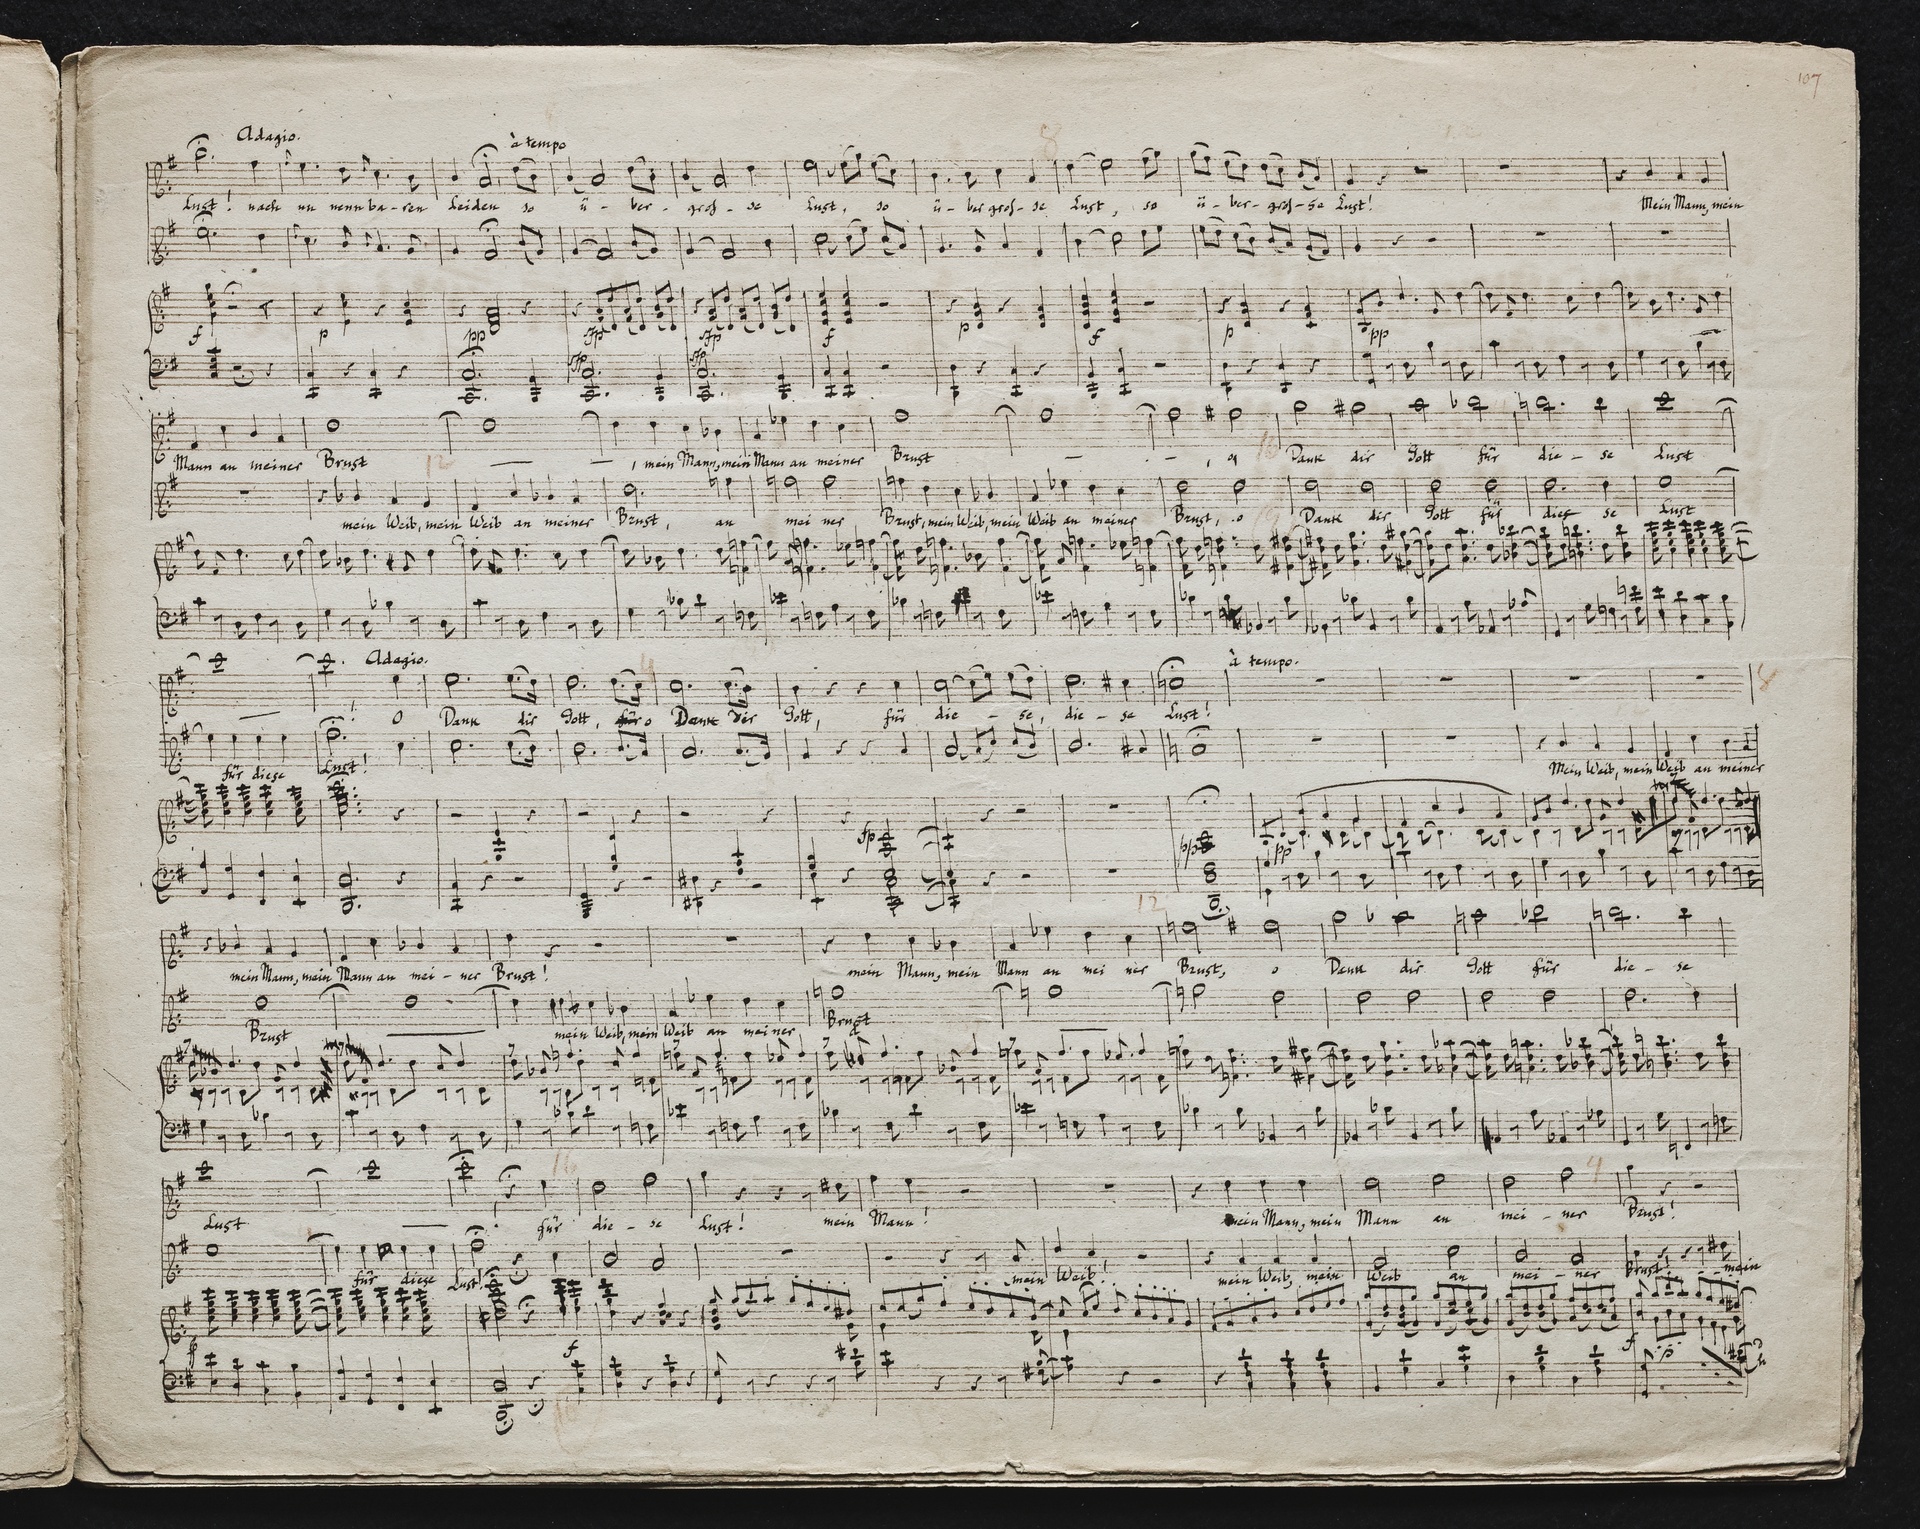 107
Adagio. à tempo 8
Lust! nach un nennba-ren Leiden so ü-ber-gros-se Lust, so ü-ber gros-se Lust, so ü-ber-gros-se Lust! Mein Mann, mein
f p pp sfp sfp f p f p pp
sfp sfp
Mann an meiner Brust, mein Mann, mein Mann an meiner Brust, o Dank dir Gott für die-se Lust
12
mein Weib, mein Weib an meiner Brust, an mei ner Brust, mein Weib, mein Weib an meiner Brust, o Dank dir Gott für dies se Lust
Adagio. 4 à tempo. 8
! O Dank dir Gott, o Dank dir Gott, für die-se, die-se Lust!
für diese Lust! Mein Weib, mein Weib an meiner
fp pp pp
12
mein Mann, mein Mann an mei-ner Brust! mein Mann, mein Mann an mei ner Brust, o Dank dir Gott für die-se
Brust mein Weib, mein Weib an meiner Brust
4
Lust! für die-se Lust! mein Mann! mein Mann, mein Mann an mei-ner Brust!
für diese Lust! mein Weib! mein Weib, mein Weib an mei-ner Brust! mein
f f p